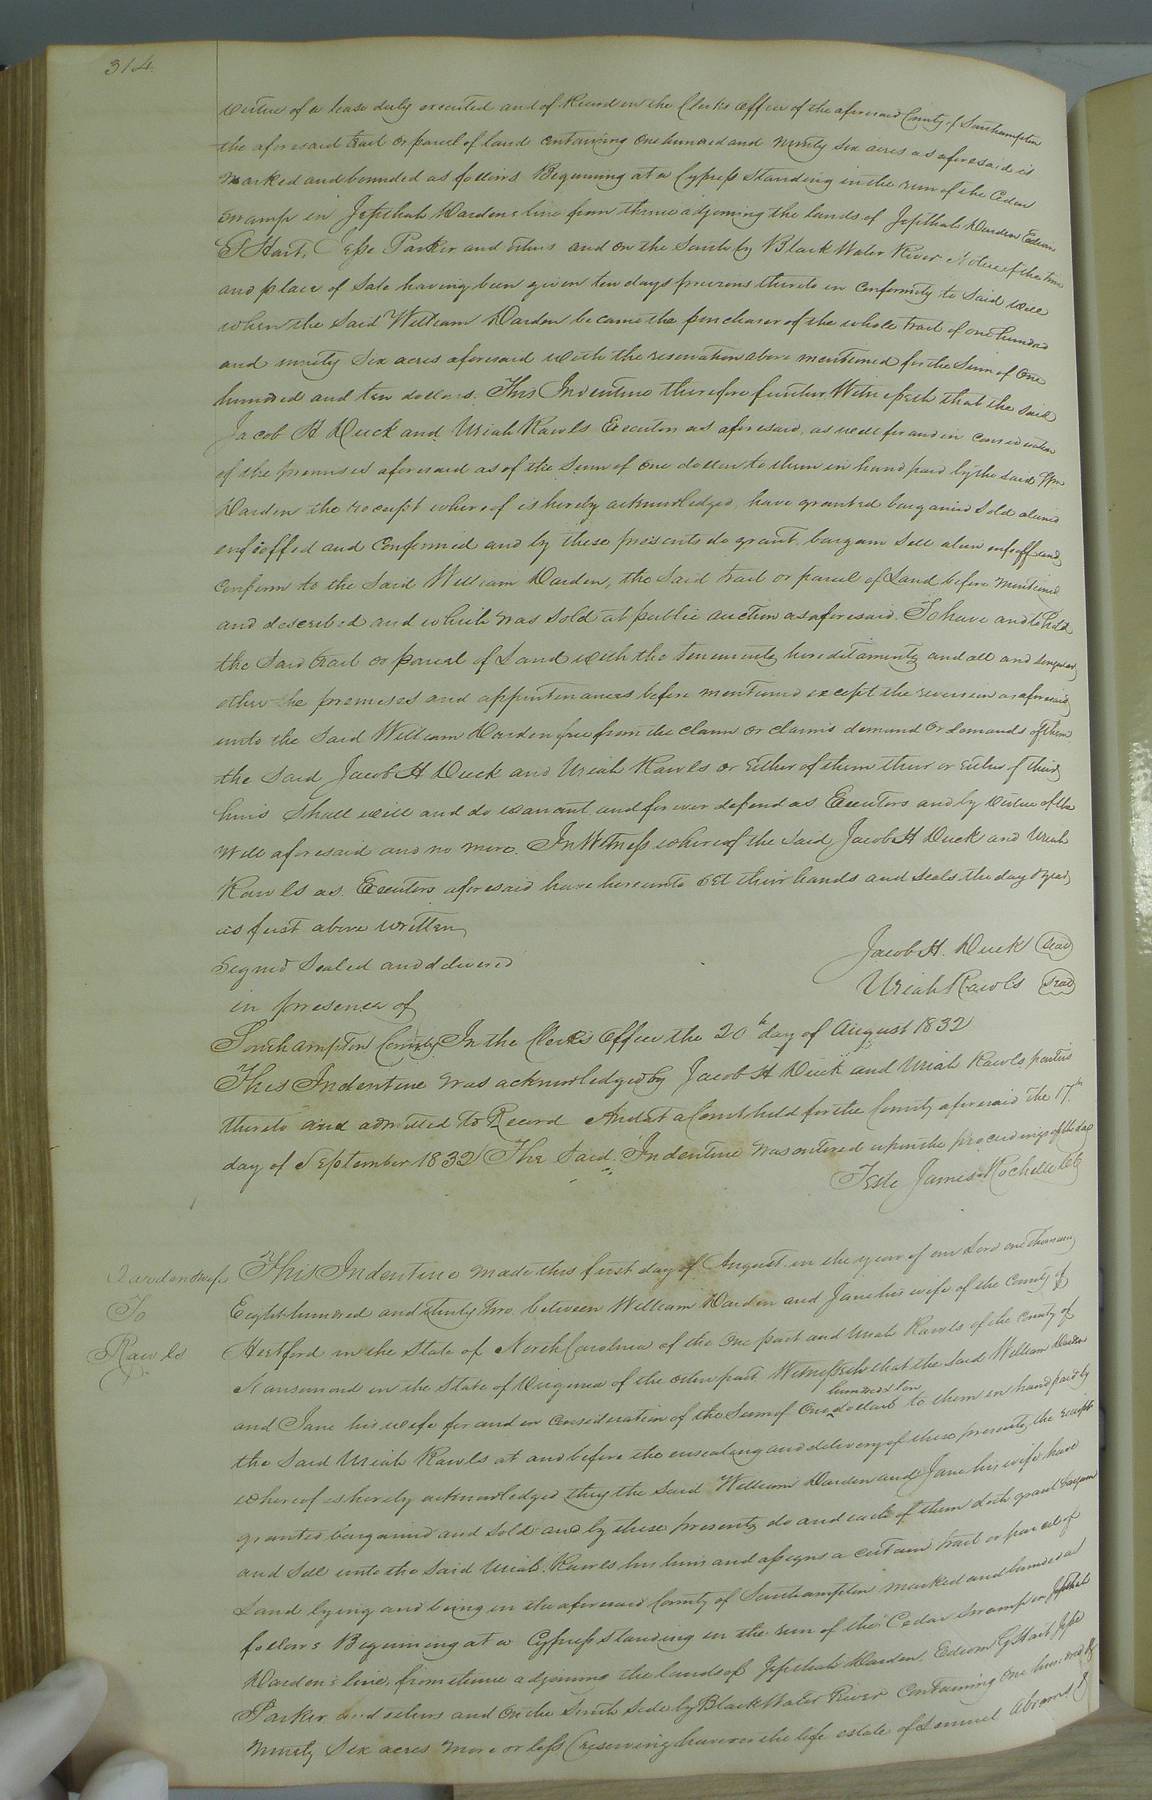 314
virtue of a lease duly executed and of Record in the Clerks office of the aforesaid County of Southampton
the aforesaid tract or parcel of land containing one hundred and ninety six acres as aforesaid is
marked and bounded as follows Beginning at a Cypress Standing in the run of the Cedar
swamp in Jepthah Dardens line from thence adjoining the lands of Jepthah Darden Edwin
G Hart, Jesse Parker and others and on the South by Black Water River Notice of the time
and place of Sale having been given ten days previous thereto in Conformity to Said will
when the Said William Darden became the purchaser of the whole tract of one hundred
and ninety Six acres aforesaid with the reservation above mentioned for the Sum of one
hundred and ten dollars. This Indenture therefore further Witnesseth that the said
Jacob H Duck and Uriah Rawls Executors as aforesaid, as well for and in consideration
of the premises aforesaid as of the Sum of one dollar to them in hand paid by the said Wm
Darden the receipt whereof is hereby acknowledged, have granted bargained Sold aliened
enfeoffed and confirmed and by these presents do grant, bargain Sell alien enfeoff and
confirm to the Said William Darden, the Said tract or parcel of Land before mentioned
and described and which was Sold at public auction as aforesaid. To have and to hold
the Said tract or parcel of Land with the tenements, hereditaments and all and Singular
other the premises and appurtenances before mentioned except the reversion as aforesaid
unto the Said William Darden free from the claim or claims demand or demands of them
the Said Jacob H Duck and Uriah Rawls or Either of them their or either of their
heirs Shall will and do warrant and forever defend as Executors and by virtue of the
Will aforesaid and no more. In Witness whereof the Said Jacob H Duck and Uriah
Rawls as Executors aforesaid have hereunto set their hands and seals the day & year
as first above written
Signed Sealed and delivered
in presence of
Jacob H. Duck seal
Uriah Rawls seal
Southampton County, In the Clerks Office the 20th day of August 1832
This Indenture was acknowledged by Jacob H Duck and Uriah Rawls parties
thereto and admitted to Record And at a Court held for the County aforesaid the 17th
day of September 1832 The Said Indenture was entered upon the proceedings of the day
Teste James Rochelle CC
Darden & wife
To
Rawls
This Indenture made this first day of August in the year of our Lord one thousand
Eight hundred and thirty two between William Darden and Jane his wife of the County of
Hertford in the State of North Carolina of the one part and Uriah Rawls of the County of
Nansemond in the State of Virginia of the other part Witnesseth that the said William Darden
and Jane his wife for and in consideration of the Sum of One hundred & ten dollars to them in hand paid by
the Said Uriah Rawls at and before the ensealing and delivery of these presents, the receipt
whereof is hereby acknowledged they the Said William Darden and Jane his wife have
granted bargained and Sold and by these presents, do and each of them doth grant bargain
and Sell unto the Said Uriah Rawls his heirs and assigns a certain tract or parcel of
Land lying and being in the aforesaid County of Southampton marked and bounded as
follows Beginning at a Cypress standing in the run of the Cedar Swamp in Jepthah
Dardens line, from thence adjoining the lands of Jepthah Darden, Edwin G Hart Jesse
Parker and others and on the South Side by Black Water River Containing one hundred &
ninety Six acres more or less (reserving however the life estate of Lemuel Abrams &